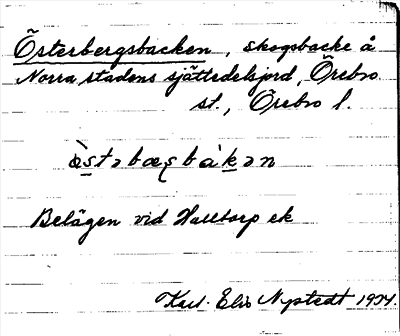 Österbergsbacken, skogsbacke å
Norra stadens sjättedelsjord, Örebro
st., Örebro l.
ö̀stəbæʂbàkən
Belägen vid Halltorp ek
Karl-Elis Nystedt 1924.